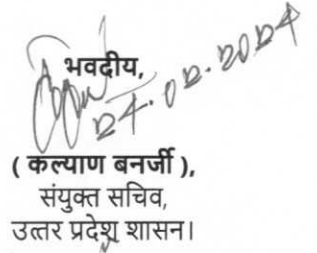 भवदीय,
24.02.2024
( कल्याण बनर्जी ),
संयुक्त सचिव,
उत्तर प्रदेश शासन।